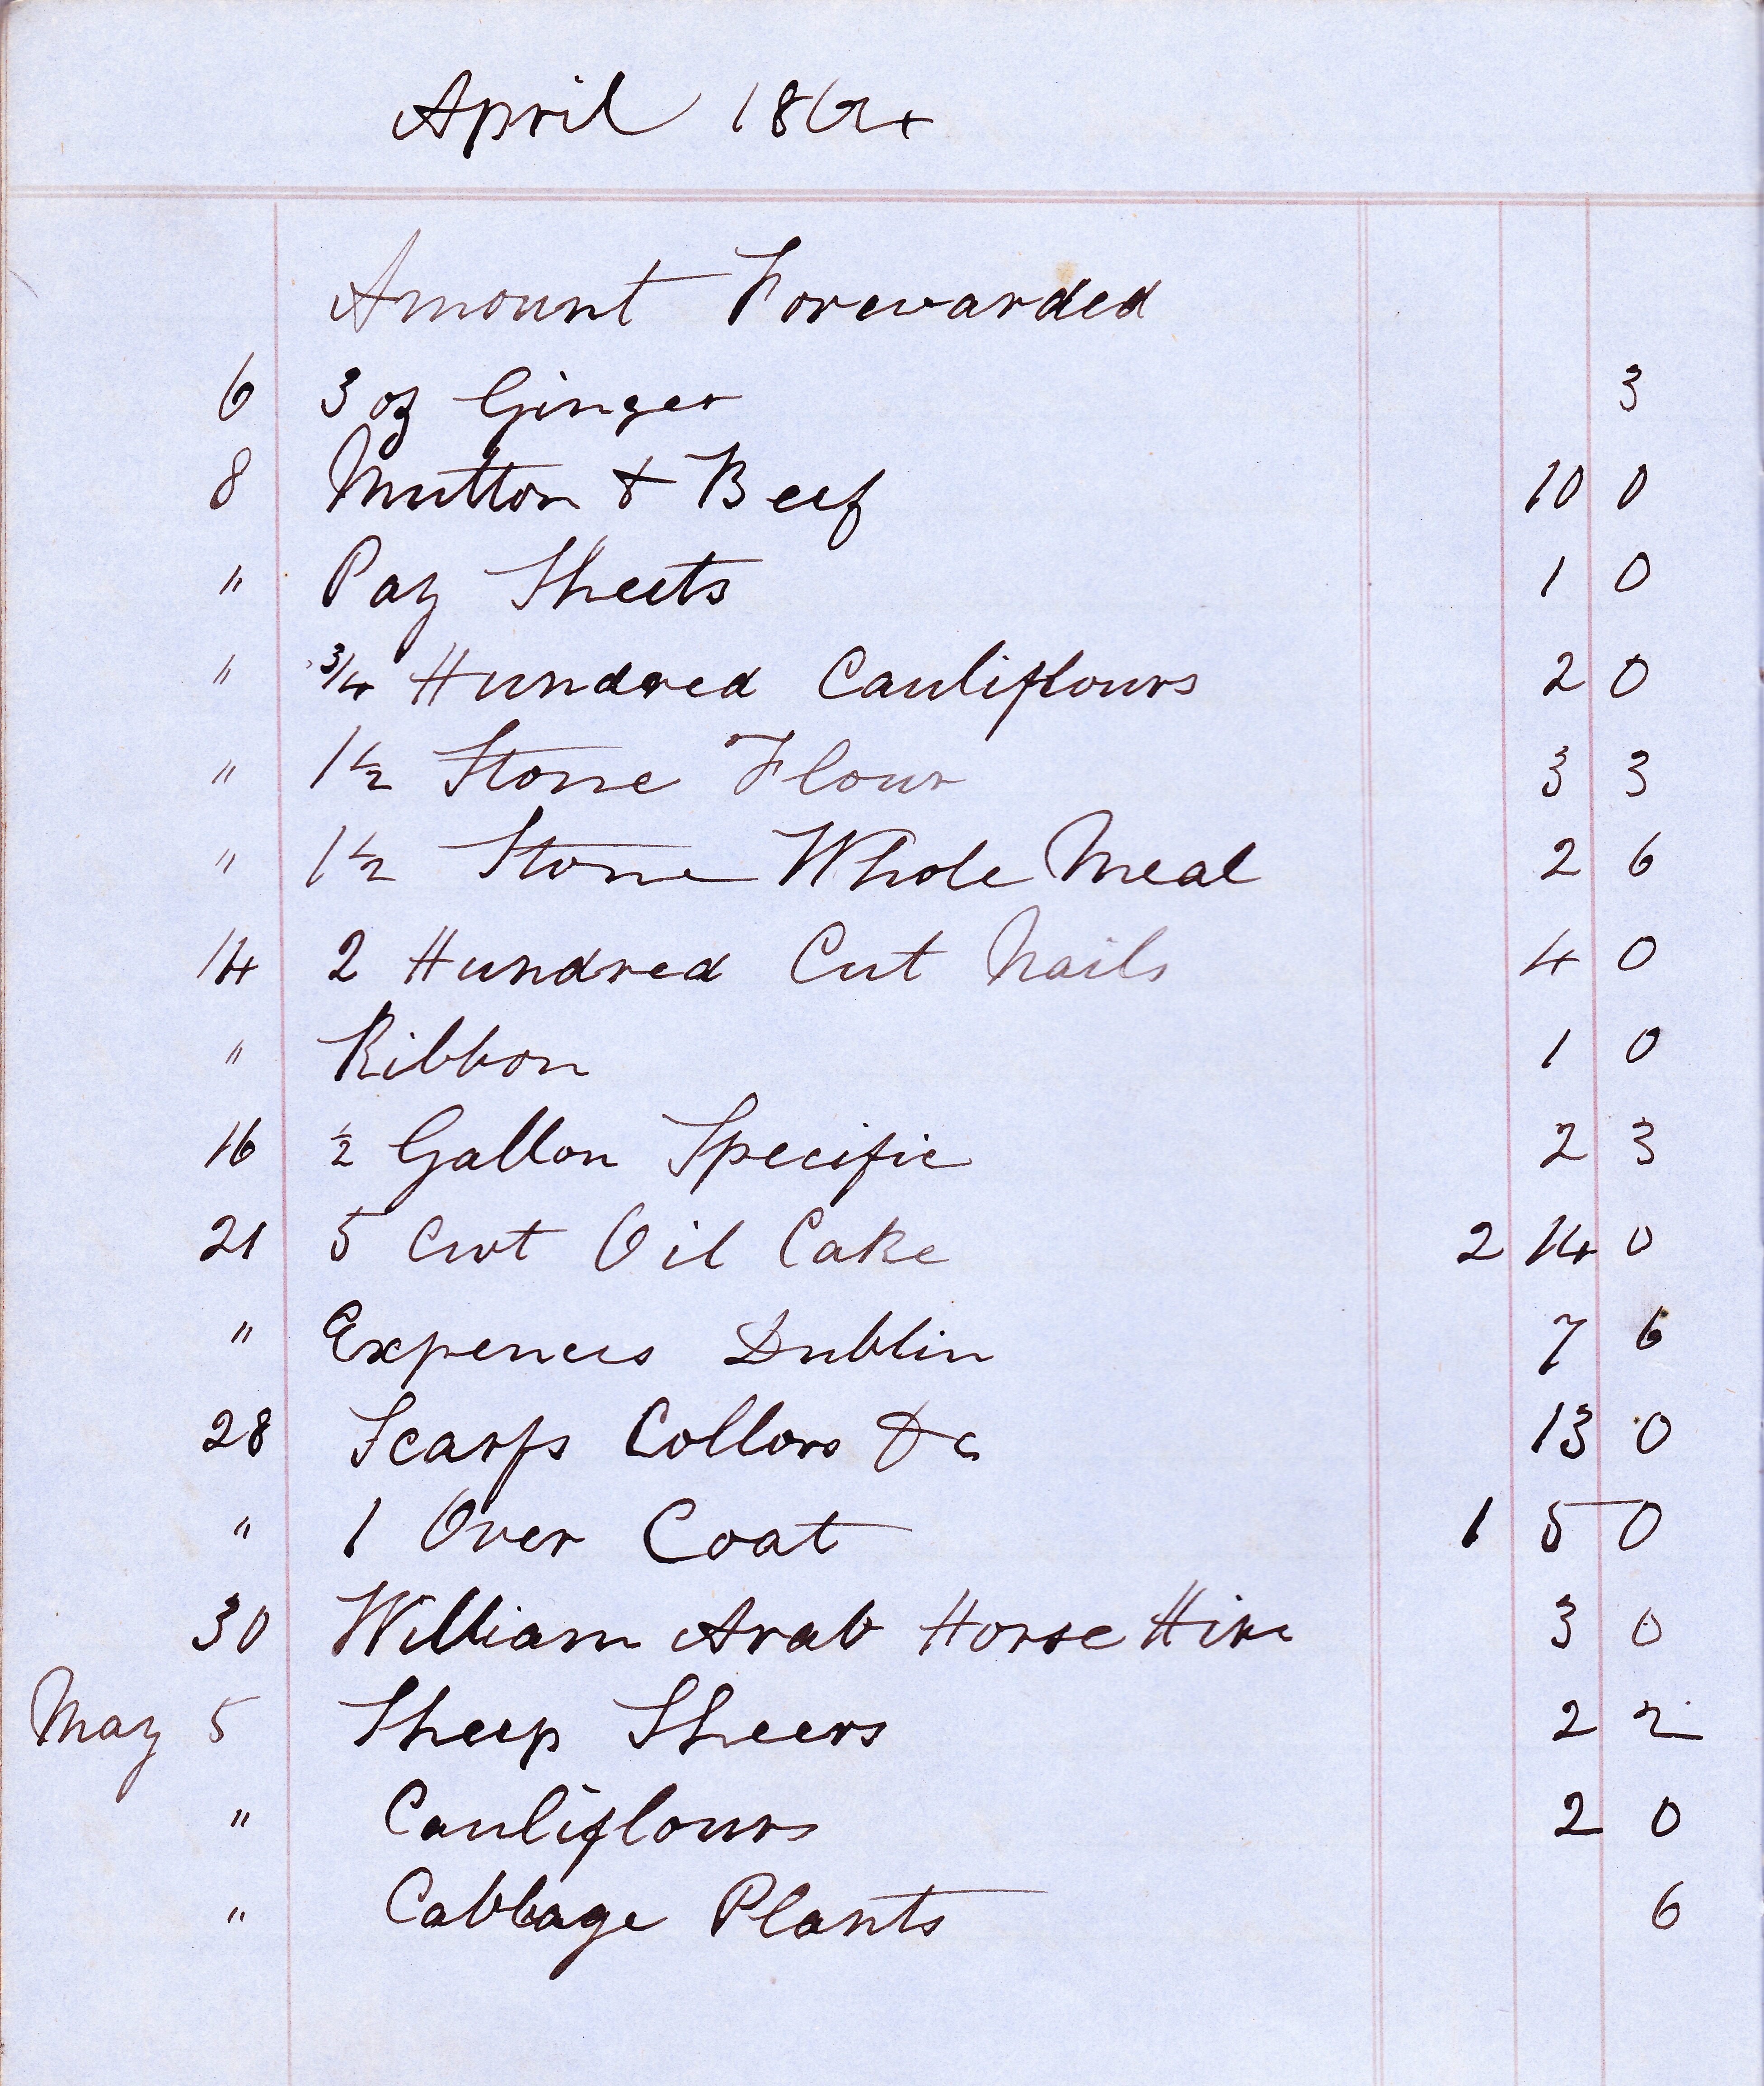 April 1864
Amount Forewarded
6 3 oz Ginger 3
8 Mutton & Beef 10 0
" Pay Sheets 1 0
" 3/4 Hundred Cauliflours 2 0
" 1 1/2 Stone Flour 3 3
" 1 1/2 Stone Whole Meal 2 6
14 2 Hundred Cut Nails 4 0
" Ribbon 1 0
16 1/2 Gallon Specific 2 3
21 5 Cwt Oil Cake 2 14 0
" Expences Dublin 7 6
28 Scarfs Collors &c 13 0
" 1 Over Coat 1 5 0
30 William Arab Horse Hire 3 0
May 5 Sheep Sheers 2 2
" Cauliflours 2 0
" Cabbage Plants 6